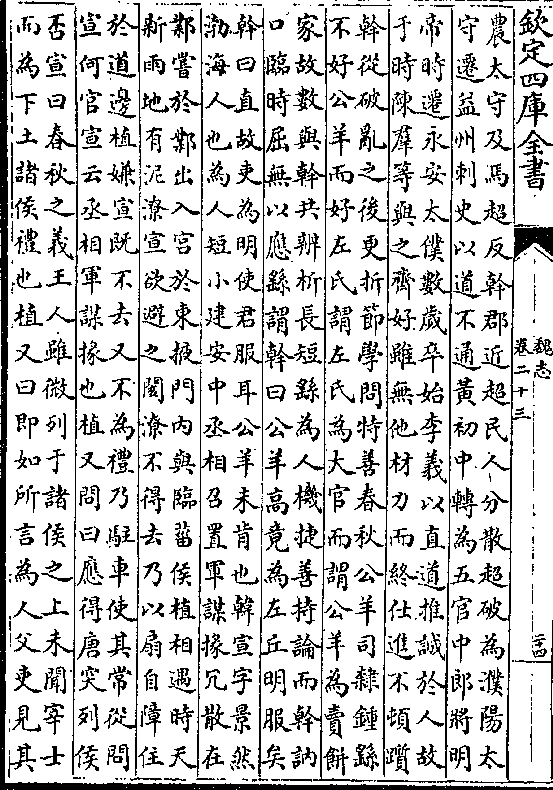 欽定四庫全書
魏志
卷二十三
二十四
農太守及馬超反幹郡近超民人分散超破為濮陽太
守遷益州刺史以道不通黃初中轉為五官中郎將明
帝時遷永安太僕數歲卒始李義以直道推誠於人故
于時陳羣等與之齊好雖無他材力而終仕進不頓躓
幹從破亂之後更折節學問特善春秋公羊司隸鍾繇
不好公羊而好左氏謂左氏為大官而謂公羊為賣餅
家故數與幹共辨析長短繇為人機捷善持論而幹訥
口臨時屈無以應繇謂幹曰公羊高竟為左丘明服矣
幹曰直故吏為明使君服耳公羊未肯也韓宣字景然
渤海人也為人短小建安中丞相召置軍謀掾冗散在
鄴嘗於鄴出入宮於東掖門内與臨菑侯植相遇時天
新雨地有泥潦宣欲避之閡潦不得去乃以扇自障住
於道邊植嫌宣既不去又不為禮乃駐車使其常從問
宣何官宣云丞相軍謀掾也植又問曰應得唐突列侯
否宣曰春秋之義王人雖微列于諸侯之上未聞宰士
而為下土諸侯禮也植又曰即如所言為人父吏見其